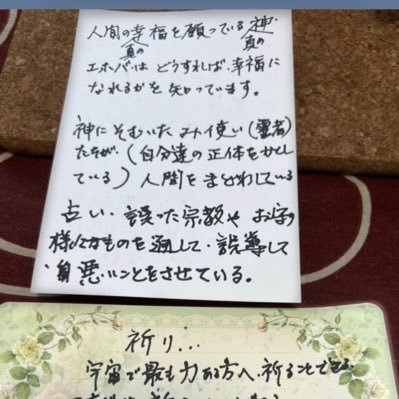 人間の幸福を願っている神・
真の
真の
エホバはどうすれば幸福に
なれるかを知っています。
神にそむいたみ使い(霊者)
たちが、(自分達の正体をかくし
ている)人間をまどわしている
占い・誤った宗教や
様々なものを通して・誤導して
悪いことをさせている。
祈り...
宇宙で最も力ある方へ祈ることできる